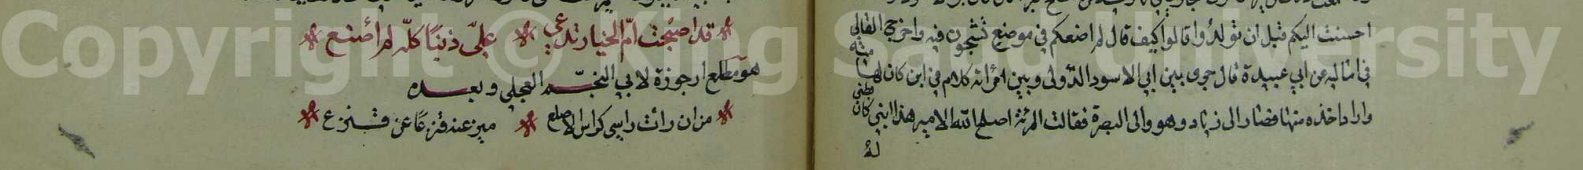 احسنت اليكم قبل ان تولدوا قالوا كيف قال لم اضعكم في موضع تشتجون فيه واخرج القالي
في اماليه عن ابي عبيدة قال جرى بين ابي الاسود الدؤلي وبين امرأته كلام في ابن كان لها منه
واراد اخذه منها فصارا الى زياد وهو والي البصرة فقالت المرأة اصلح الله الامير هذا ابني كان
له
قد اصبحت ام الخيار تدعي علي ذنبا كله لم أصنع
هو مطلع ارجوزة لابي النجم العجلي وبعده
من ان رأت راسي كراس الاصلع ميز عنه قنزعا عن قنزع
Copyright © King Saud University